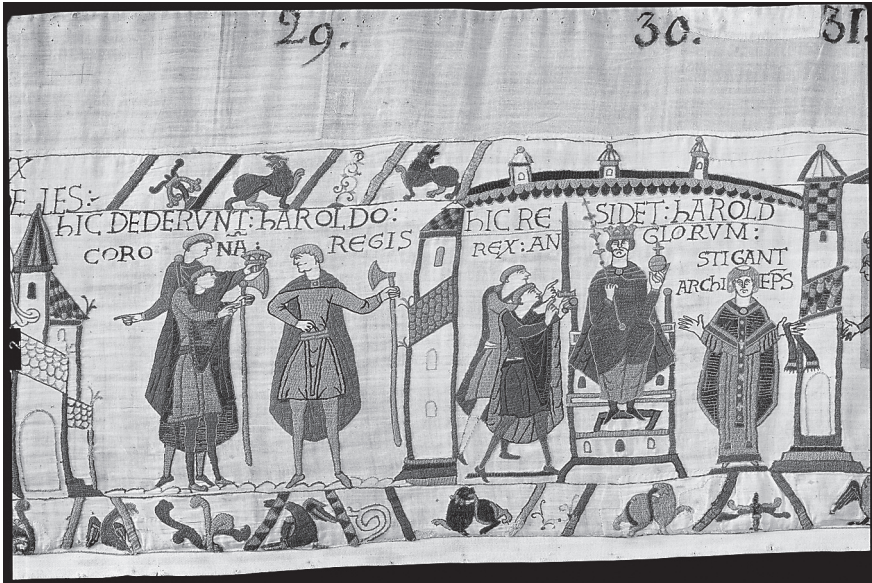 29. 30. 31.
X
E LES:
hIC DEDERVNT: hAROLDO:
CORO NA: REGIS
hIC RE SIDET: hAROLD
REX: AN GLORVM:
STIGANT
ARChI EPS
2